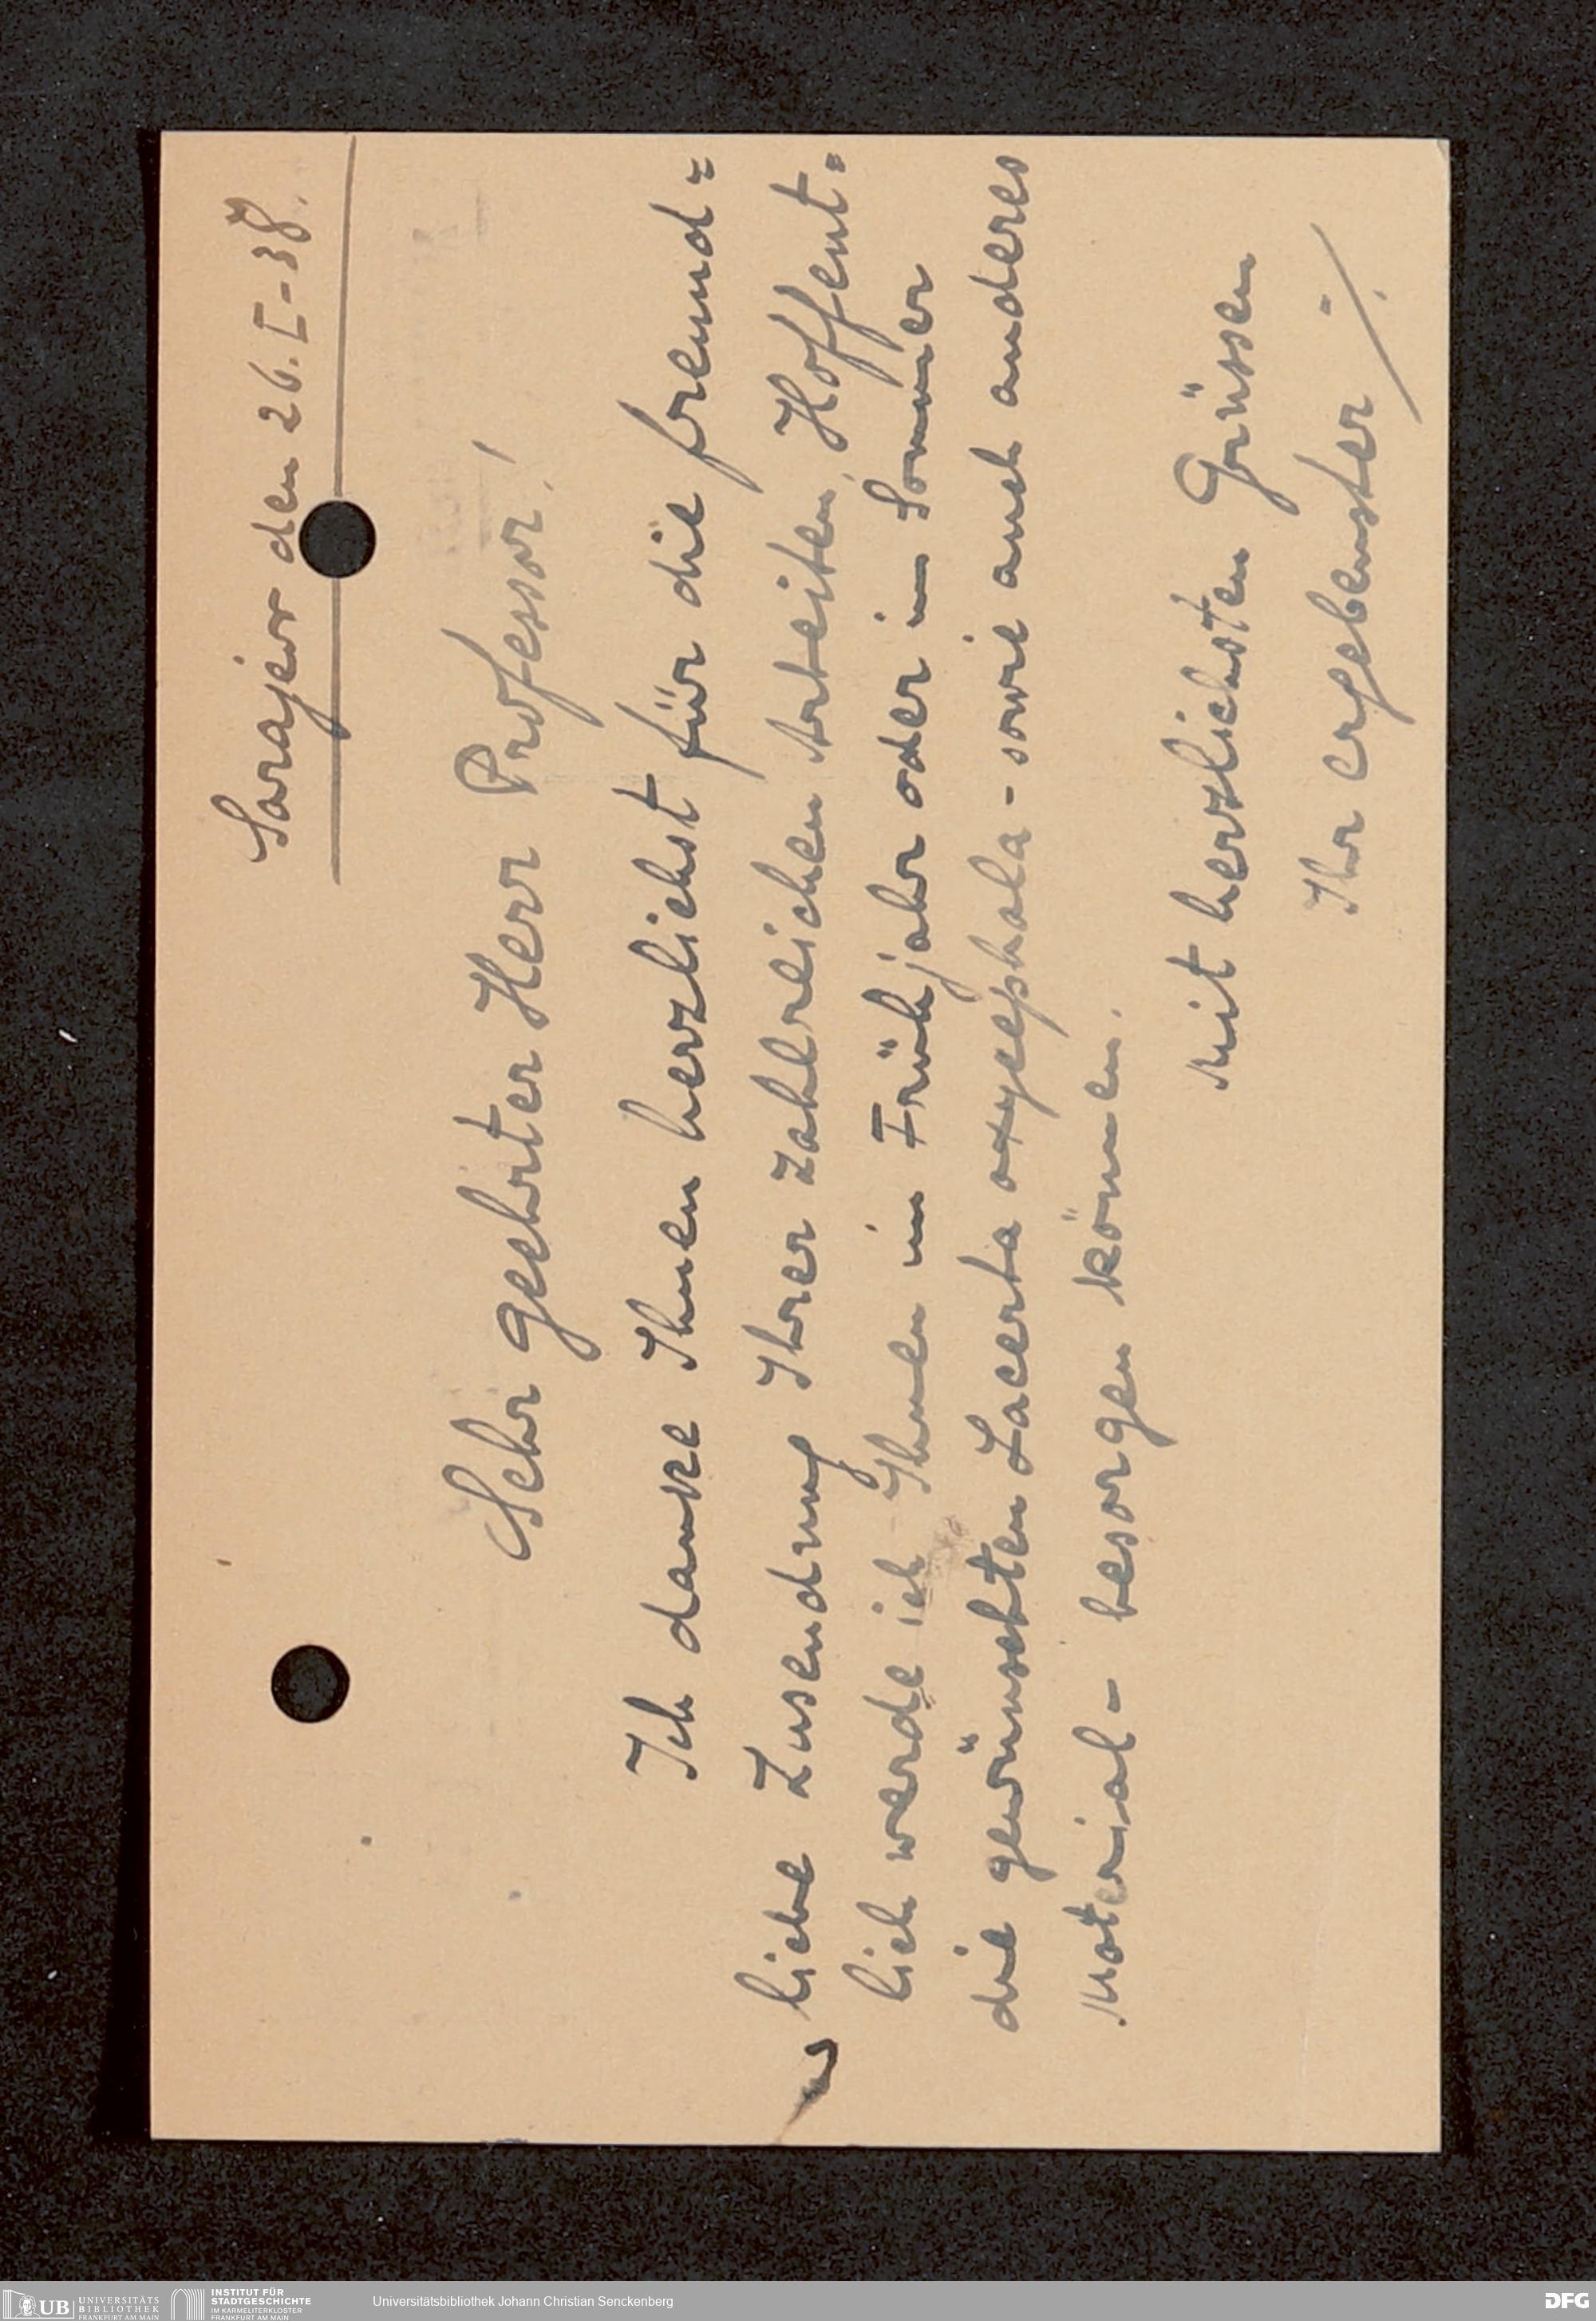 Sarajevo den 26.I-38.
Sehr geehrter Herr Professor!
Ich danke Ihnen herzlichst für die freund=
liche Zusendung Ihrer zahlreichen Arbeiten. Hoffent=
lich werde ich Ihnen im Frühjahr oder im Sommer
die gewünschten Lacerta oxycephala - sowie auch anderes
Material - besorgen können.
Mit herzlichsten Grüssen
Ihr ergebenster ./.
UB UNIVERSITÄTS
BIBLIOTHEK
FRANKFURT AM MAIN
INSTITUT FÜR
STADTGESCHICHTE
IM KARMELITERKLOSTER
FRANKFURT AM MAIN
Universitätsbibliothek Johann Christian Senckenberg
DFG